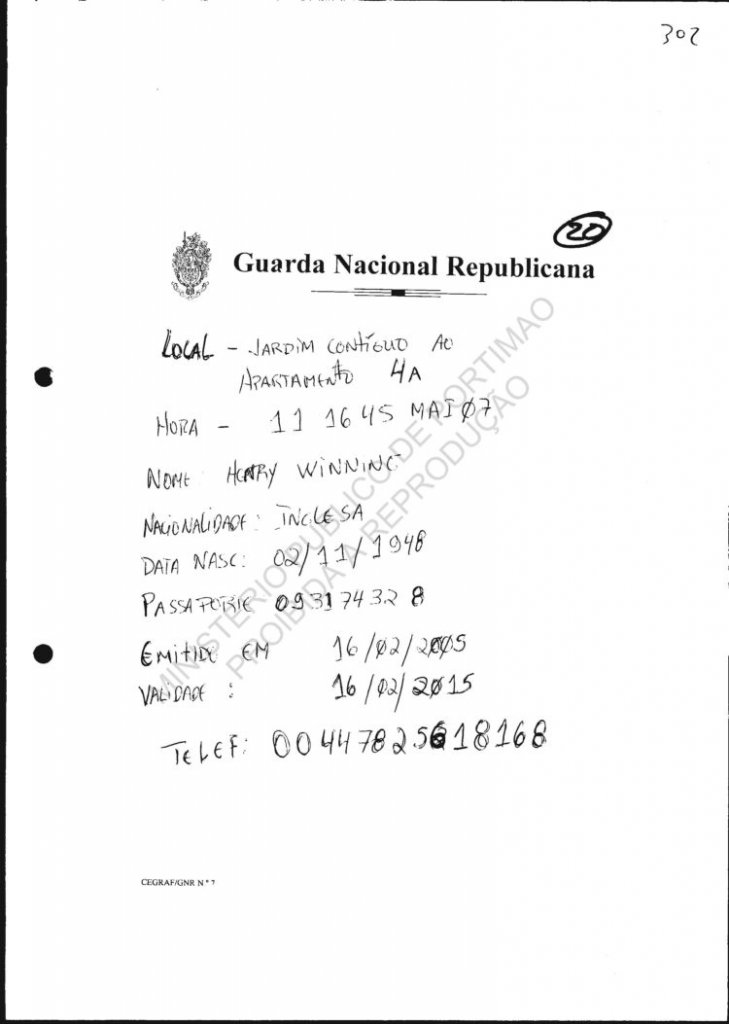 302
20
Guarda Nacional Republicana
LOCAL - JARDIM CONTÍGUO AO
APARTAMENTO 4A
HORA - 11 1645 MAI07
NOME: HENRY WINNING
NACIONALIDADE: INGLESA
DATA NASC: 02/11/1948
PASSAPORTE 093174328
EMITIDO EM 16/02/2005
VALIDADE: 16/02/2015
TELEF: 00447825618168
MINISTÉRIO PÚBLICO DE PORTIMAO
PROIBIDA A REPRODUÇÃO
CEGRAF/GNR Nº 7